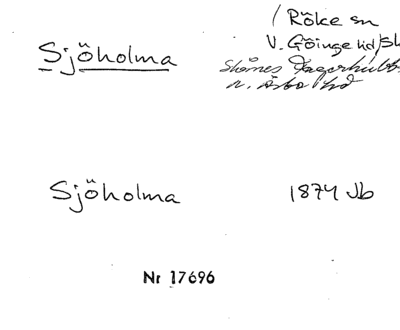 Sjöholma
/ Röke sn
V. Göinge hd/Sk
Skånes Fagerhult
N. Åsbo hd
Sjöholma
1874 Jb
Nr 17696